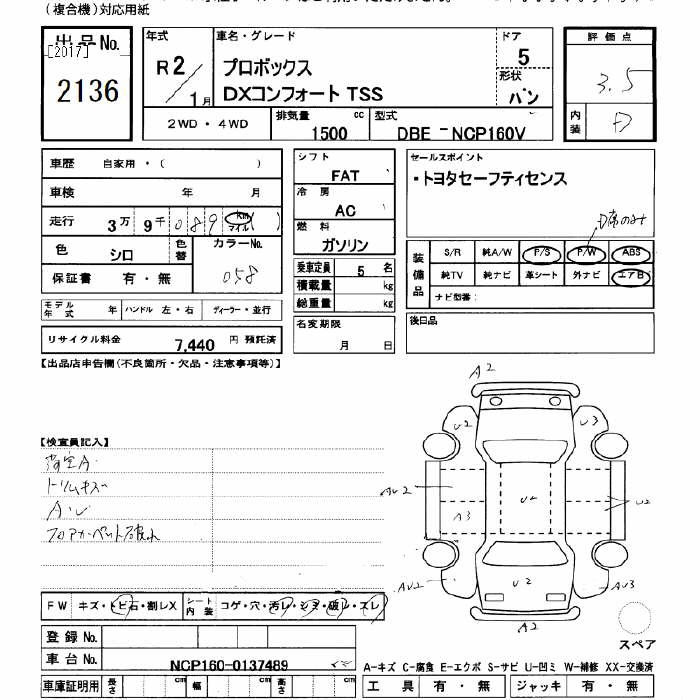 (複合機)対応用紙
出品No.
[2017]
2136
年式
R2/1月
車名・グレード
プロボックス
DXコンフォート TSS
ドア
5
形状
バン
評価点
3.5
内装
D
2WD・4WD
排気量
1500 cc
型式
DBE -NCP160V
車歴 自家用・( )
車検 年 月
走行 3万 9千 089 Km マイル ( )
色 シロ
色替
カラーNo.
058
保証書 有・無
モデル年式 年 ハンドル 左・右 ディーラー・並行
リサイクル料金 7,440 円 預託済
シフト
FAT
冷房
AC
燃料
ガソリン
乗車定員 5 名
積載量 kg
総重量 kg
名変期限
月 日
セールスポイント
・トヨタセーフティセンス
D席のみ
装備品
S/R 純A/W P/S P/W ABS
純TV 純ナビ 革シート 外ナビ エアB
ナビ型番:
後日品
【出品店申告欄(不良箇所・欠品・注意事項等)】
【検査員記入】
トリムキズ
A・U
フロアカーペット破れ
A2
U2
U3
AU2
U2
A3
U2
AU2
U2
AU3
A2
スペア
FW キズ・トビ石・割レX
シート内装 コゲ・穴・汚レ・シミ・破レ・スレ
登録No.
車台No. NCP160-0137489
車庫証明用 長さ cm 幅 cm 高さ cm
A-キズ C-腐食 E-エクボ S-サビ U-凹ミ W-補修 XX-交換済
工具 有・無 ジャッキ 有・無